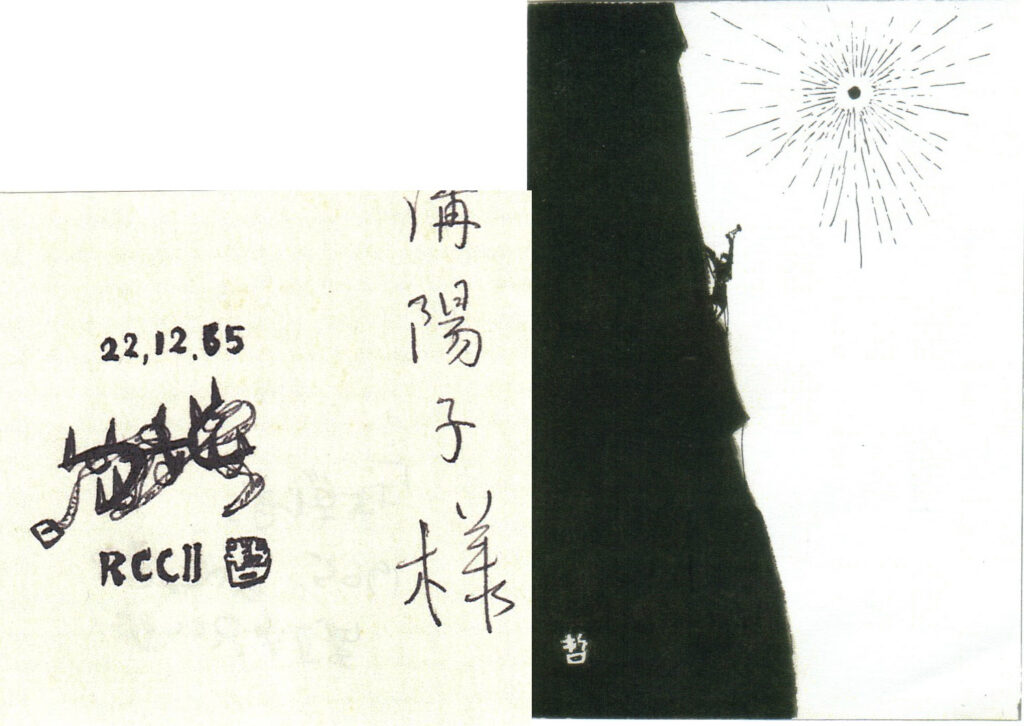 溝陽子様
22,12.65
RCCII 哲
哲